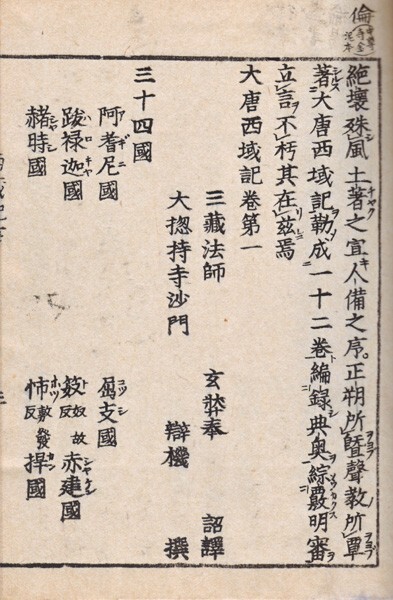 倫中尊寺金泥本
絶壤殊風土著之宜人備之序。正朔所曁聲教所覃
著大唐西域記勒成一十二卷編録典奧綜覈明審
立言不朽其在茲焉
大唐西域記卷第一
三藏法師 玄奘奉 詔譯
大揔持寺沙門 辯機 撰
三十四國
阿耆尼國 屈支國
跋禄迦國 笯奴故反赤建國
赭時國 怖敷發反捍國